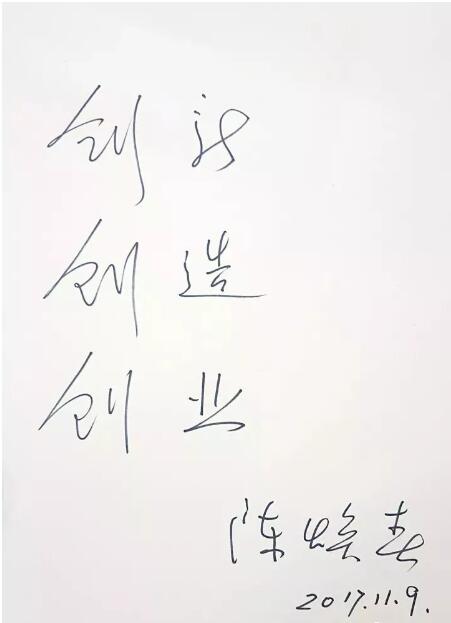 创新
创造
创业
陈焕春
2017.11.9.